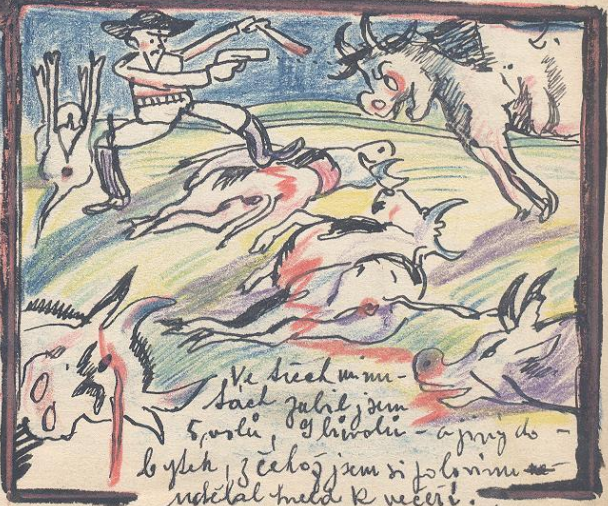 Ve třech minu-
tach zabil jsem
5 volů, 9 bůvolů - a jiný do-
bytek, z čehož jsem si polovinu
udělal hned k večeři.